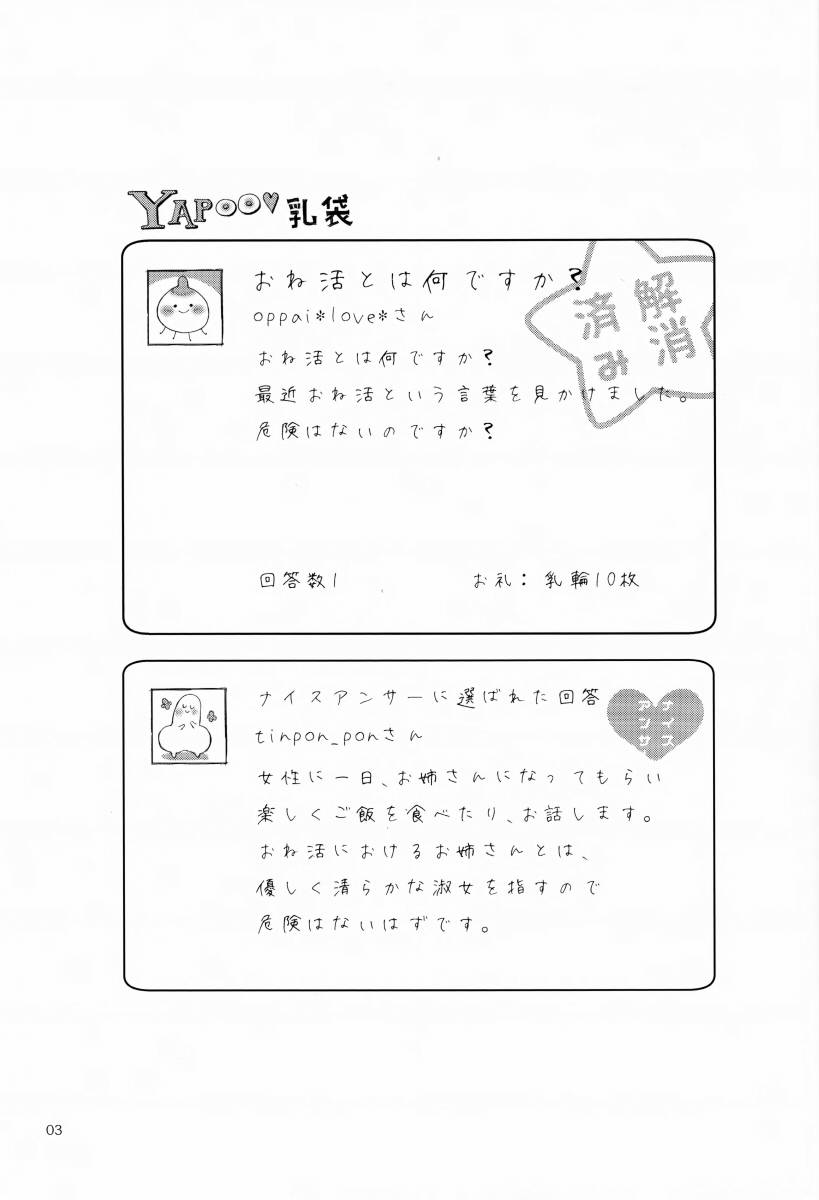 YAPOO♥乳袋
おね活とは何ですか?
oppai*love*さん
解消
済み
おね活とは何ですか?
最近おね活という言葉を見かけました。
危険はないのですか?
回答数1
お礼:乳輪10枚
ナイスアンサーに選ばれた回答
ナイス
アンサー
tinpon_ponさん
女性に一日、お姉さんになってもらい
楽しくご飯を食べたり、お話します。
おね活におけるお姉さんとは、
優しく清らかな淑女を指すので
危険はないはずです。
03